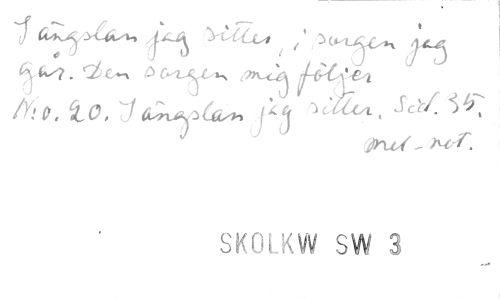 I ängslan jag sitter, i sorgen jag
går. Den sorgen mig följer
N:o. 20. I ängslan jag sitter. Sid. 35.
mel-not.
SKOLKW SW 3